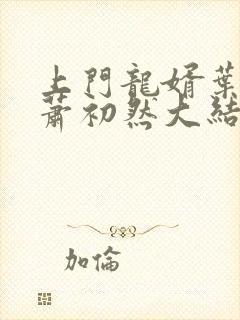 上門龍婿葉
蕭初然大結
加倫